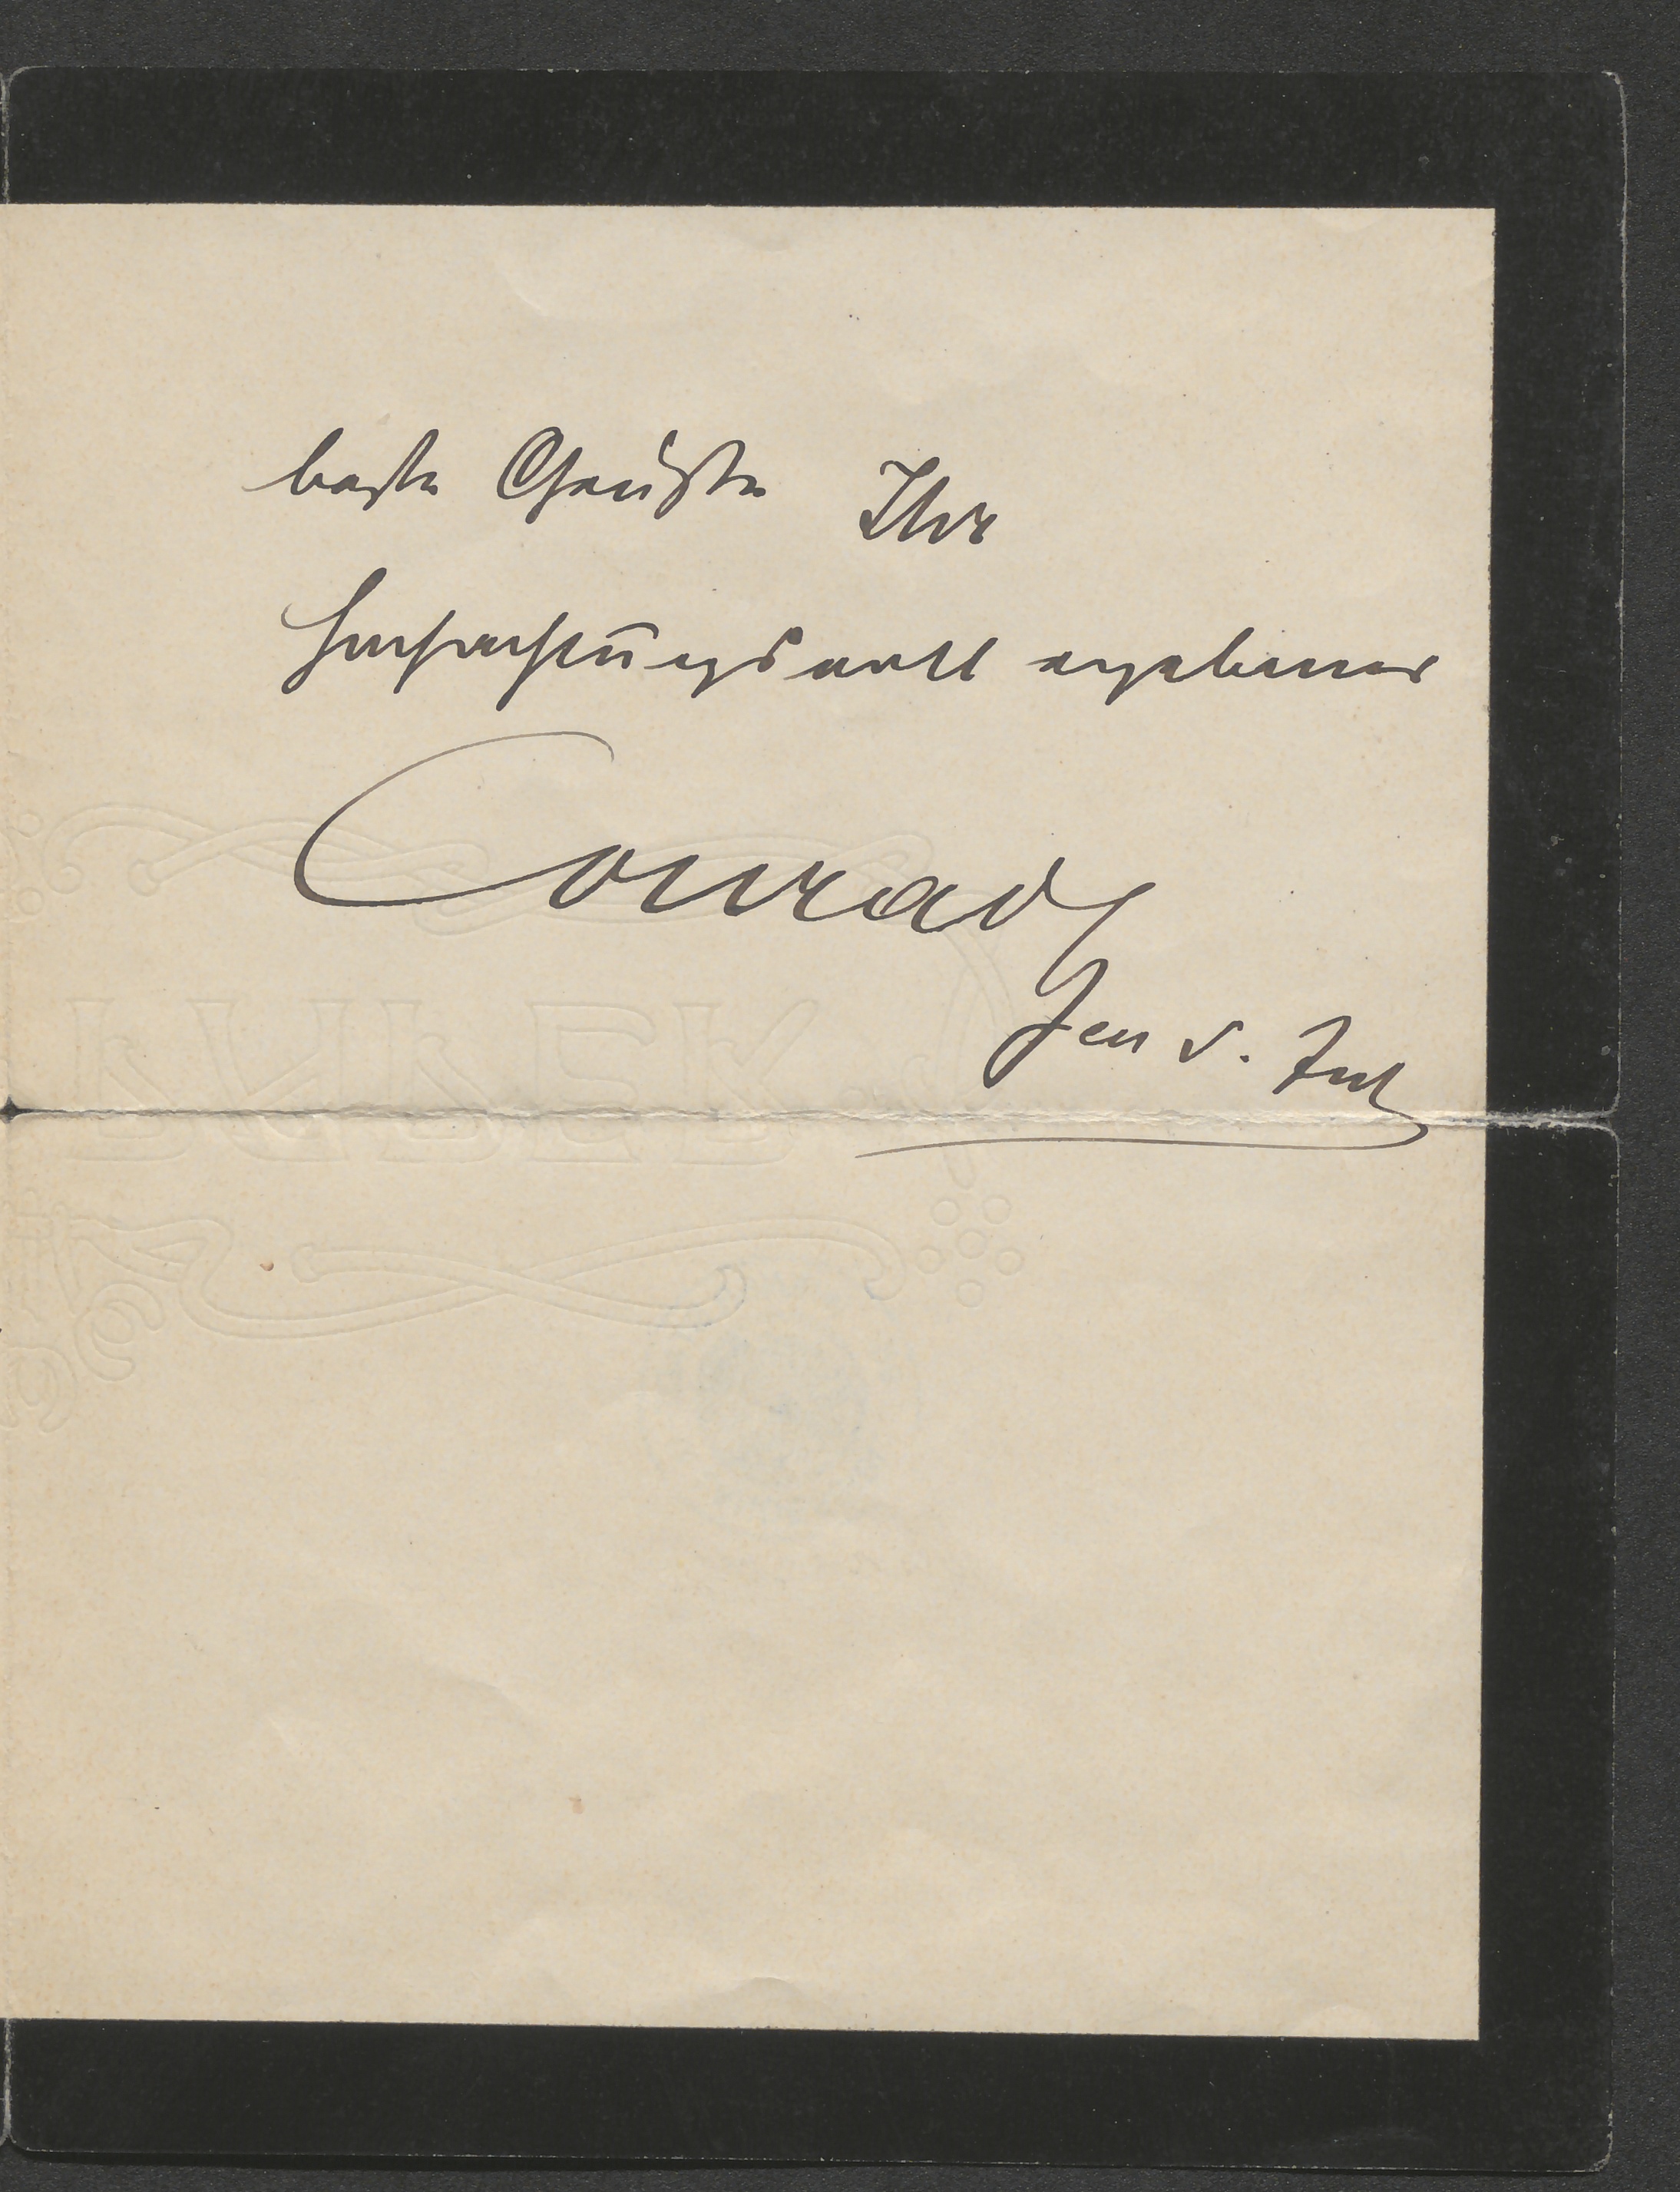 beste Grüße Ihr
hochachtungsvoll ergebener
Conrad
Gen d. Inf